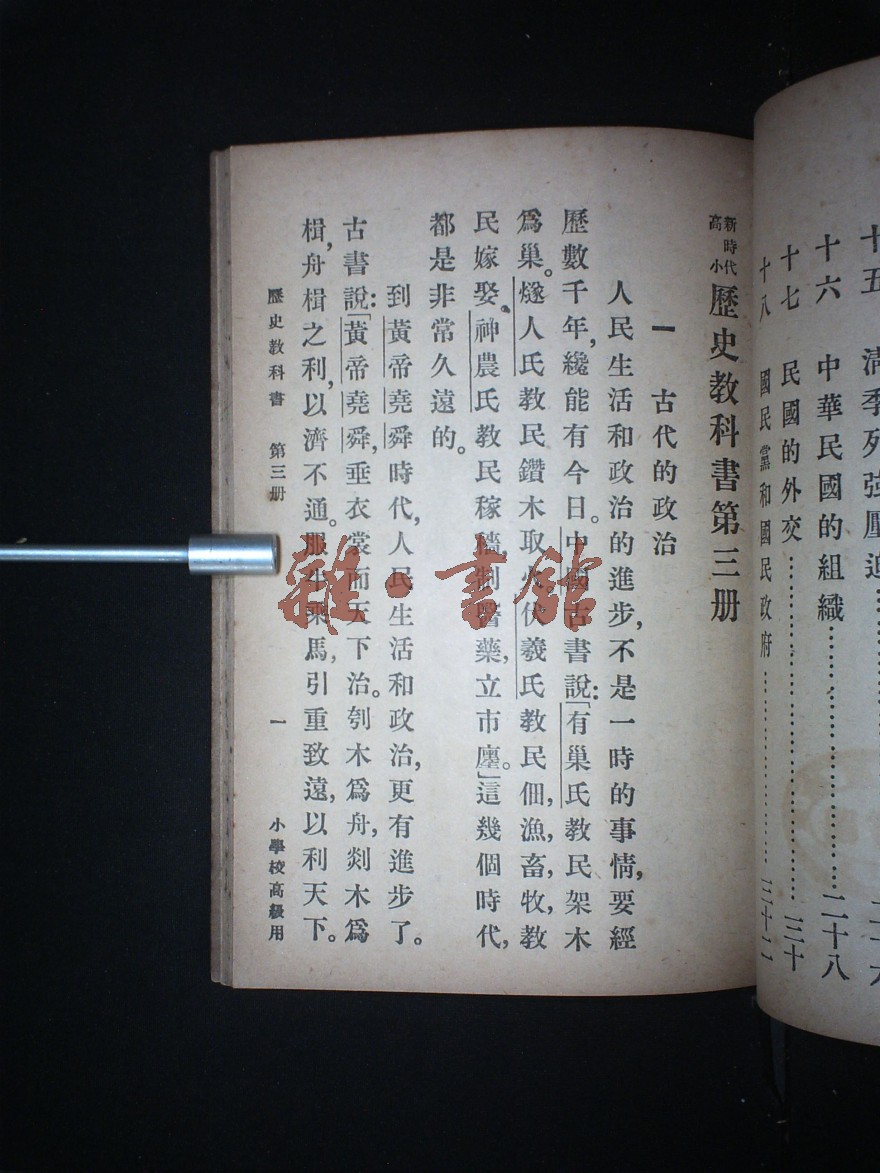 十六 中華民國的組織……二十八
十七 民國的外交……三十
十八 國民黨和國民政府……三十二
新時代高小 歷史教科書第三册
一 古代的政治
人民生活和政治的進步,不是一時的事情,要經
歷數千年,纔能有今日。中國古書說:「有巢氏教民架木
爲巢。燧人氏教民鑽木取火,伏羲氏教民佃,漁,畜,牧,教
民嫁娶。神農氏教民稼穡,制醫藥,立市廛。」這幾個時代,
都是非常久遠的。
到黃帝堯舜時代,人民生活和政治,更有進步了。
古書說:「黃帝堯舜,垂衣裳而天下治。刳木爲舟,剡木爲
楫,舟楫之利,以濟不通。服牛乘馬,引重致遠,以利天下。
歷史教科書 第三册 一 小學校高級用
雜·書館